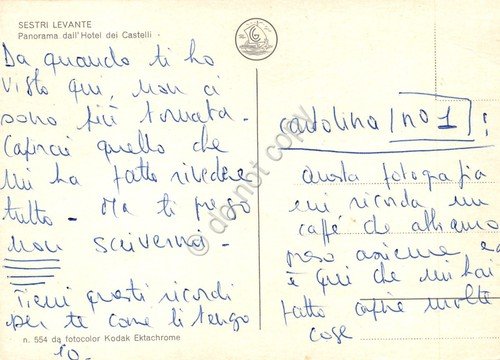 SESTRI LEVANTE
Panorama dall'Hotel dei Castelli
Da quando ti ho
visto qui, non ci
sono più tornata.
Capirai quello che
mi ha fatto rivedere
tutto - Ma ti prego
non scrivermi -
Tieni questi ricordi
per te come li tengo
io.
n. 554 da fotocolor Kodak Ektachrome
cartolina / no 1 / :
questa fotografia
mi ricorda un
caffè che abbiamo
preso assieme ed
è qui che mi hai
fatto capire molte
cose
do not copy